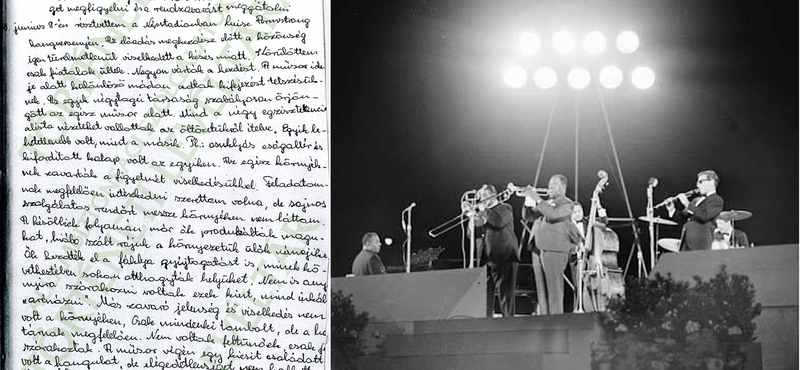 get megfigyelni és a rendzavarást meggátolni
junius 9-én résztvettem a Népstadionban Luise Armstrong
hangversenyén. Az előadás megkezdése előtt a közönség
igen türelmetlenül viselkedett a késés miatt. Körülöttem
csak fiatalok ültek. Nagyon várták a kezdést. A műsor ide-
je alatt különböző módon adtak kifejezést tetszésük-
nek. Az egyik négytagú társaság szabályosan őrjön-
gött az egész műsor alatt. Mind a négy egzisztencia
alista nézeteket vallottak az öltözékükről itélve. Egyik le-
hetetlenebb volt, mind a másik. Pl.: csuklyás
kifordított kalap volt az egyiken. Az egész környék-
nek zavarták a figyelmét viselkedésükkel. Feladatom-
nak megfelelően intézkedni szerettem volna, de sajnos
szolgálatos rendőrt messze környéken nem láttam.
A későbbiek folyamán már ők produkálták magu-
kat, hiába szólt rájuk a környezetük ülők
Ők kezdték el a fáklya gyújtogatást is minek kö-
vetkeztében sokan otthagyták helyüket. Nem is any-
nyira szórakozni voltak ezek kint, mind inkább
"arénázni". Más zavaró jelenség és viselkedés nem
volt a környéken, csak mindenki tombolt, de a ha
tárnak megfelelően. Nem voltak feltünőek, csak
szórakoztak. A műsor végén egy kicsit csalódott
volt a hangulat, de elégedetlenséget nem